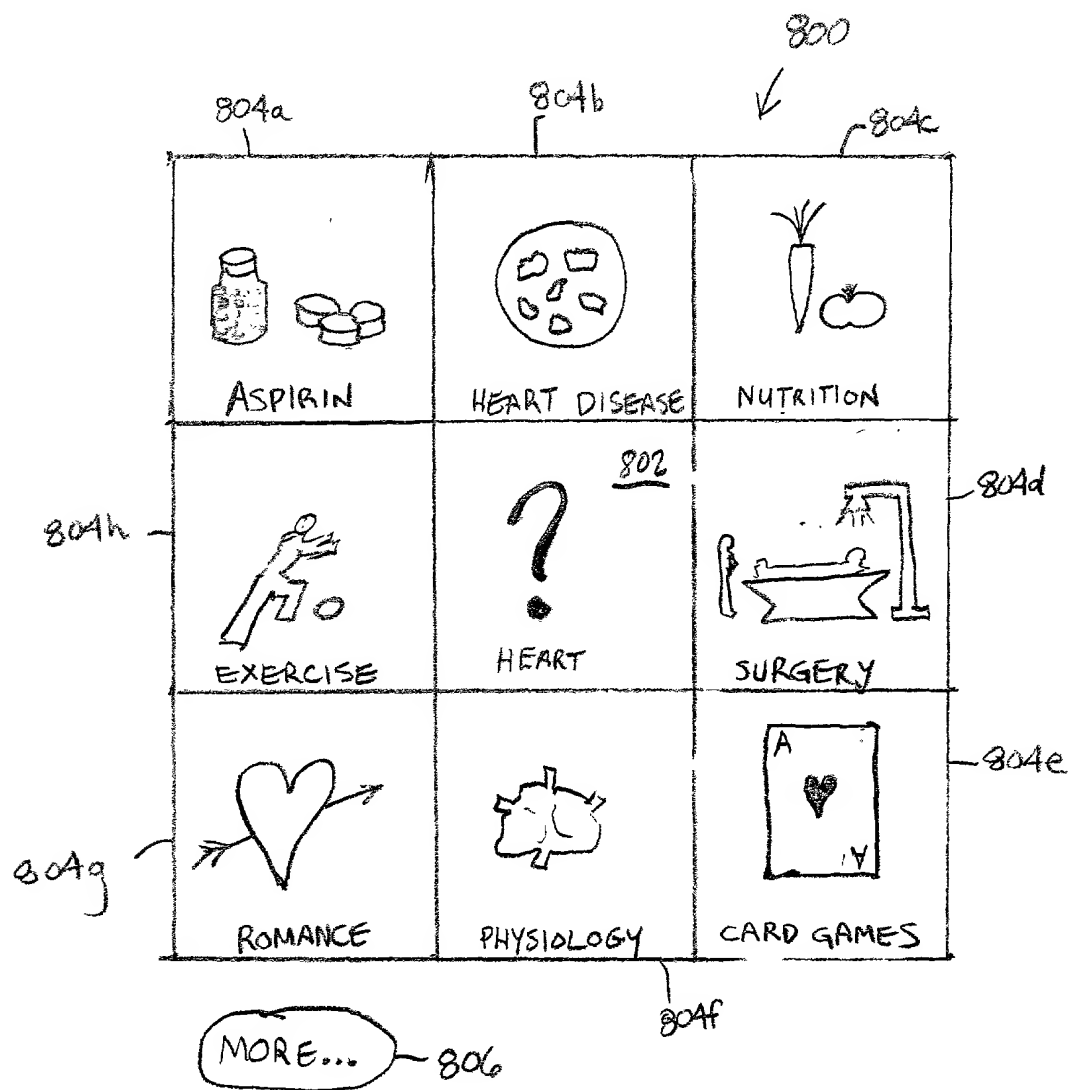 800
804a
804b
804c
ASPIRIN
HEART DISEASE
NUTRITION
804h
802
804d
EXERCISE
HEART
SURGERY
A
A
804e
804g
ROMANCE
PHYSIOLOGY
CARD GAMES
804f
MORE...
806